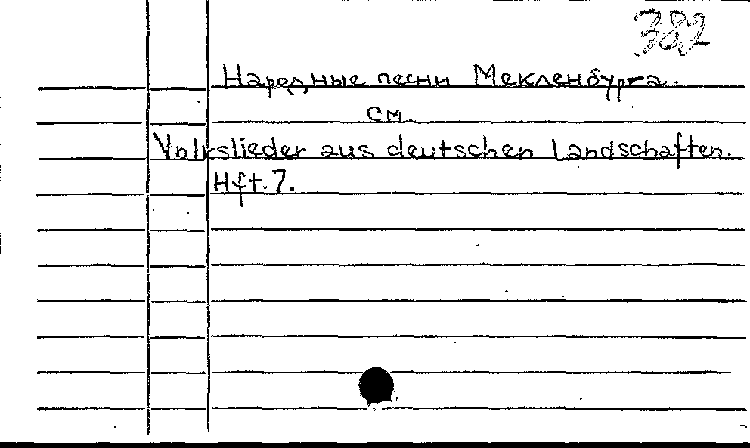 382
Народные песни Мекленбурга.
см.
Volkslieder aus deutschen Landschaften.
Hft. 7.